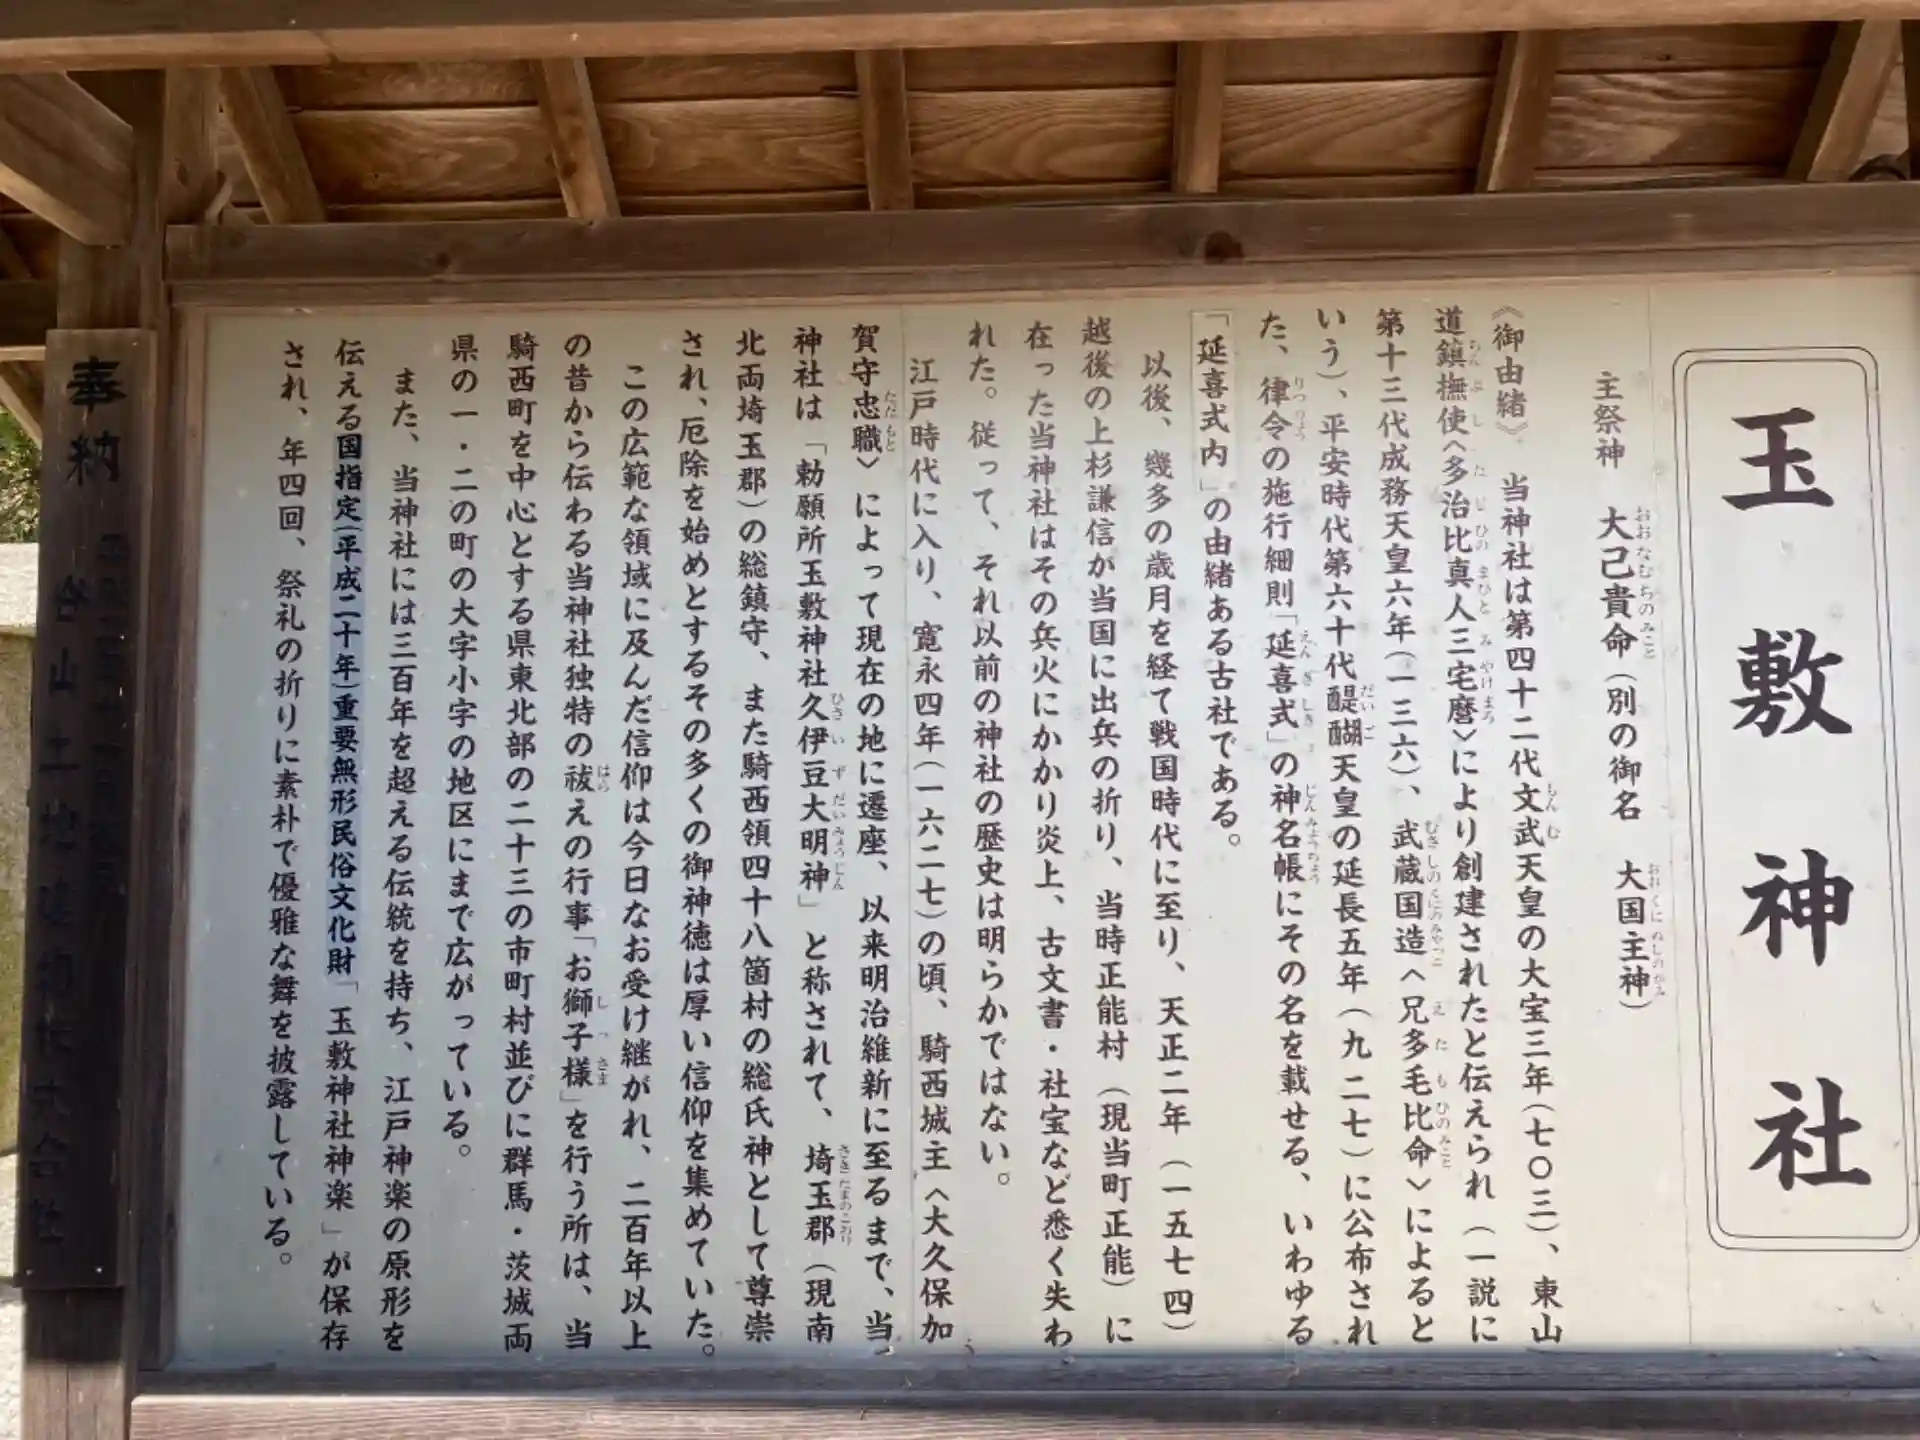 玉敷神社
主祭神 大己貴命(別の御名 大国主神)
《御由緒》 当神社は第四十二代文武天皇の大宝三年(七〇三)、東山
道鎮撫使〈多治比真人三宅麿〉により創建されたと伝えられ(一説に
第十三代成務天皇六年(一三六)、武蔵国造〈兄多毛比命〉によると
いう)、平安時代第六十代醍醐天皇の延長五年(九二七)に公布され
た、律令の施行細則「延喜式」の神名帳にその名を載せる、いわゆる
「延喜式内」の由緒ある古社である。
以後、幾多の歳月を経て戦国時代に至り、天正二年(一五七四)
越後の上杉謙信が当国に出兵の折り、当時正能村(現当町正能)に
在った当神社はその兵火にかかり炎上、古文書・社宝など悉く失わ
れた。従って、それ以前の神社の歴史は明らかではない。
江戸時代に入り、寛永四年(一六二七)の頃、騎西城主〈大久保加
賀守忠職〉によって現在の地に遷座、以来明治維新に至るまで、当
神社は「勅願所玉敷神社久伊豆大明神」と称されて、埼玉郡(現南
北両埼玉郡)の総鎮守、また騎西領四十八箇村の総氏神として尊崇
され、厄除を始めとするその多くの御神徳は厚い信仰を集めていた。
この広範な領域に及んだ信仰は今日なお受け継がれ、二百年以上
の昔から伝わる当神社独特の祓えの行事「お獅子様」を行う所は、当
騎西町を中心とする県東北部の二十三の市町村並びに群馬・茨城両
県の一・二の町の大字小字の地区にまで広がっている。
また、当神社には三百年を超える伝統を持ち、江戸神楽の原形を
伝える国指定(平成二十年)重要無形民俗文化財「玉敷神社神楽」が保存
され、年四回、祭礼の折りに素朴で優雅な舞を披露している。
奉納